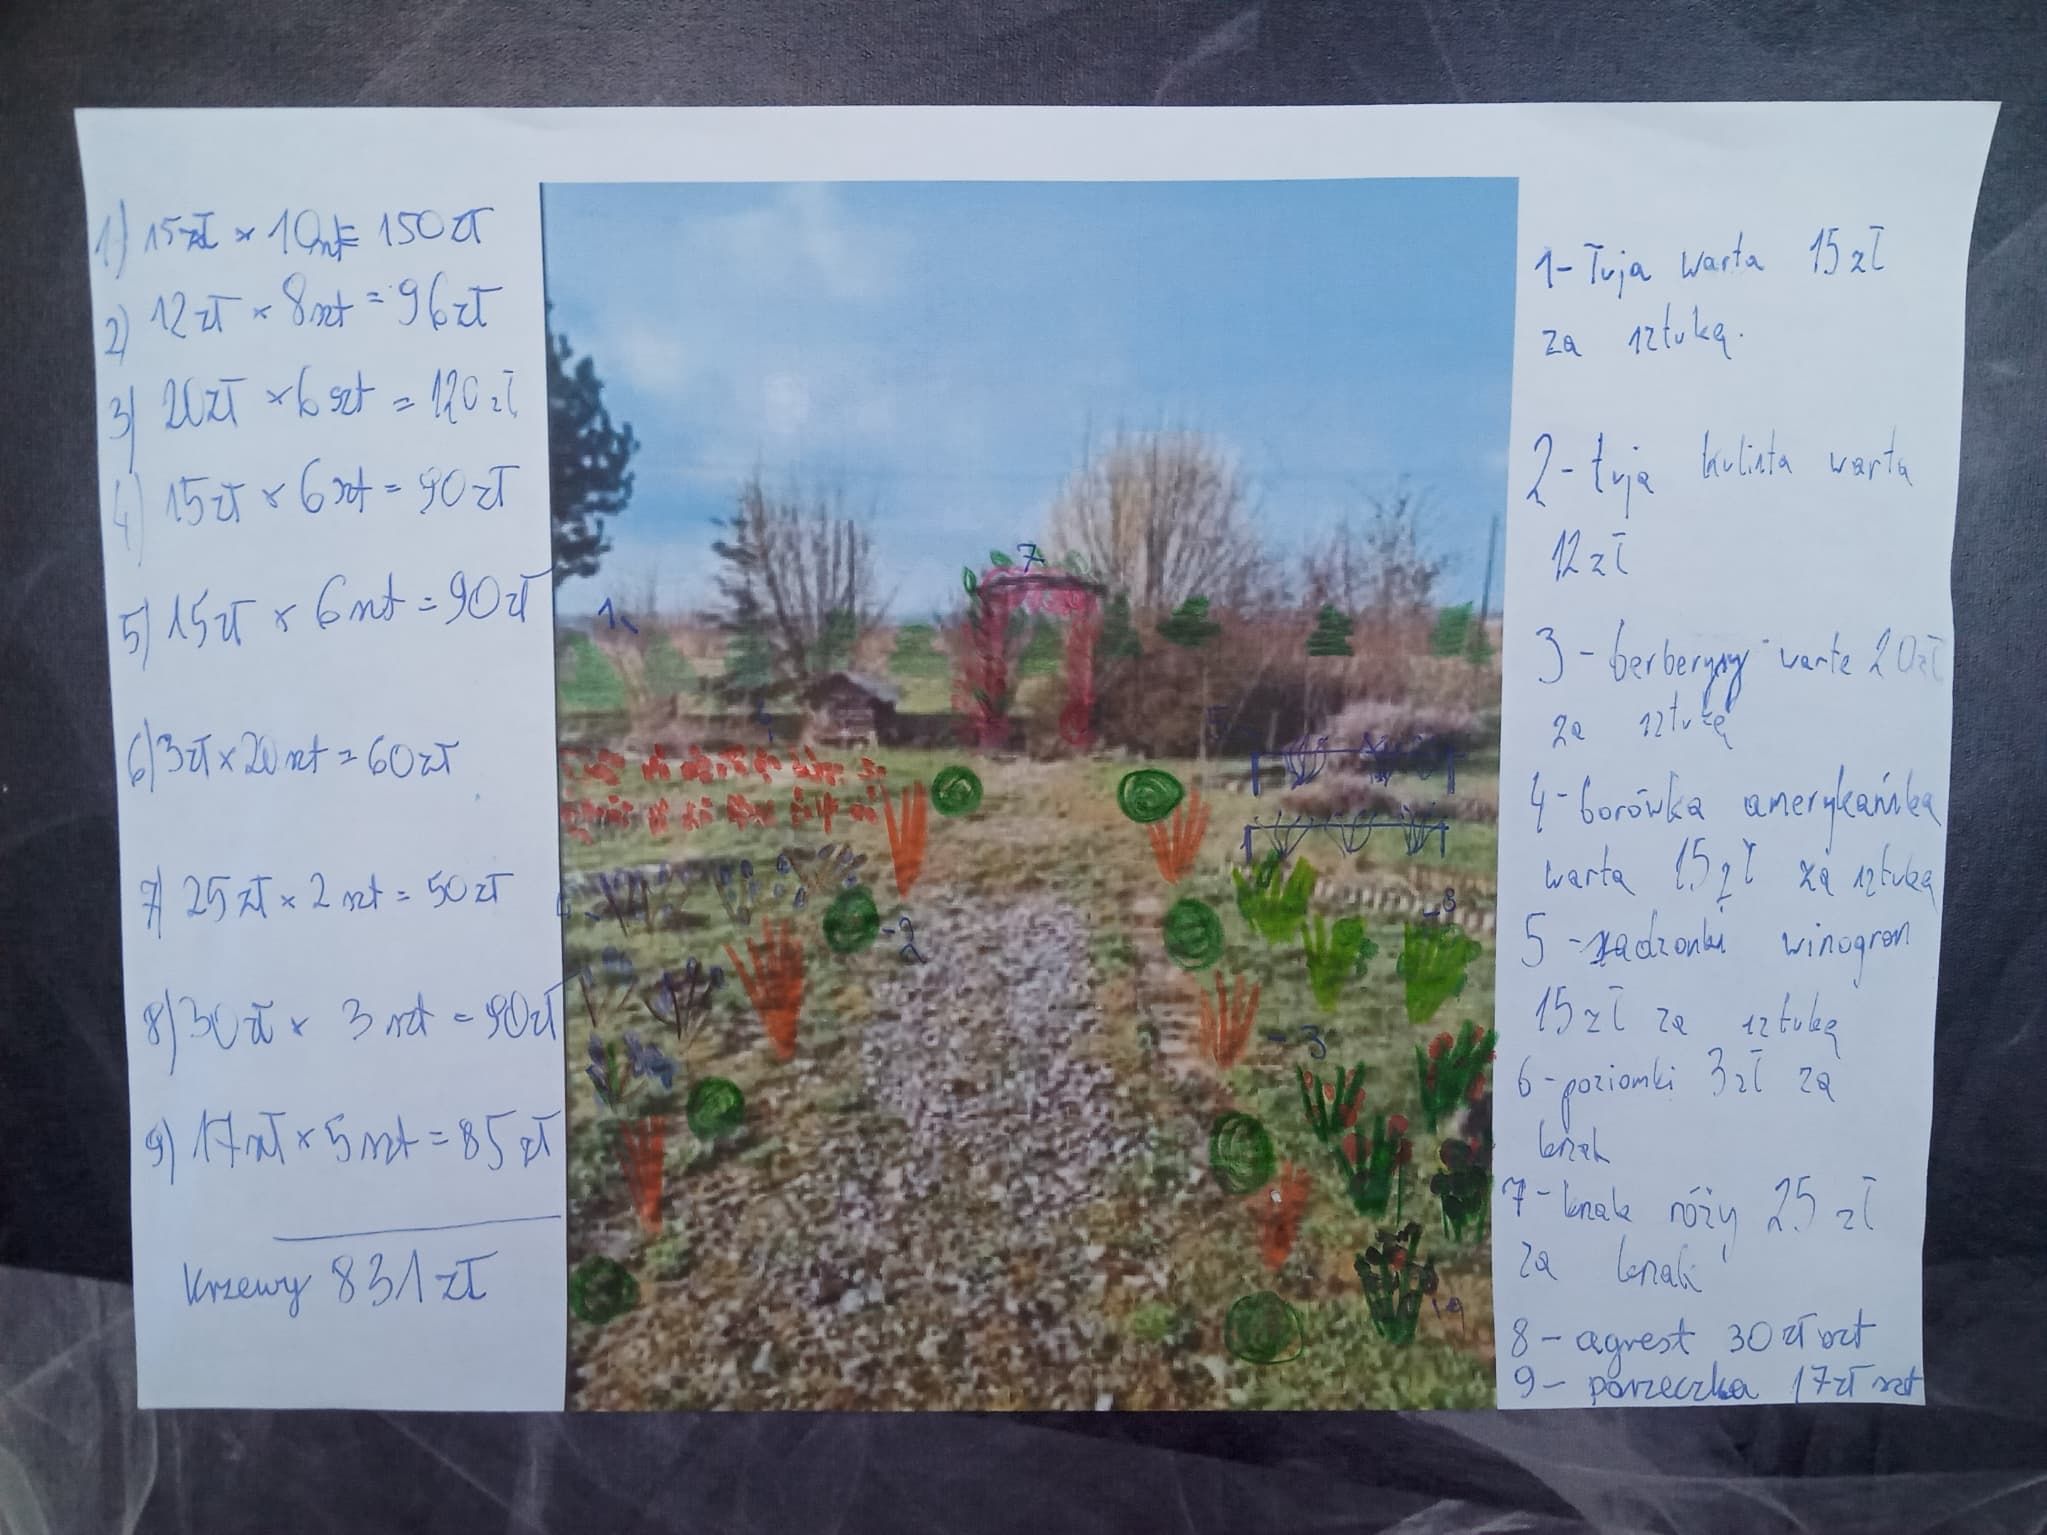 1) 15zł × 10szt = 150zł
2) 12zł × 8szt = 96zł
3) 20zł × 6szt = 120zł
4) 15zł × 6szt = 90zł
5) 15zł × 6szt = 90zł
6) 3zł × 20szt = 60zł
7) 25zł × 2szt = 50zł
8) 30zł × 3szt = 90zł
9) 17zł × 5szt = 85zł
Krzewy 831zł
7
1.
5
-2
-8
-3
9
1- Tuja warta 15zł
za sztukę.
2- tuja kulista warta
12zł
3- berberysy warte 20zł
za sztukę
4- borówka amerykańska
warta 15zł za sztukę
5- sadzonki winogron
15zł za sztukę
6- poziomki 3zł za
krzak
7- krzak róży 25 zł
za krzak
8- agrest 30zł szt
9- porzeczka 17zł szt